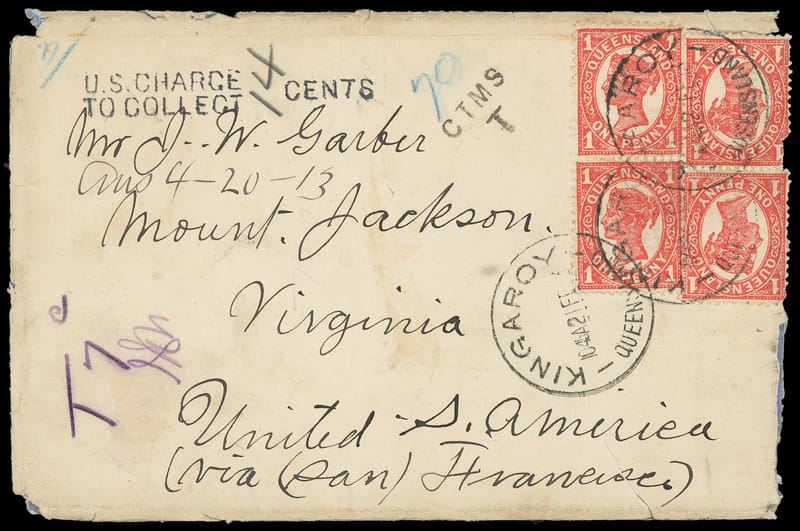 U.S. CHARGE
TO COLLECT 14 CENTS
70
CTMS
T
Mr J. W. Garber
Ans 4-20-13
Mount. Jackson.
Virginia
United S. America
(via (San) Francisco)
T 7 c
KINGAROY
QUEENS
QUEENSLAND
1 1
ONE PENNY
QUEENSLAND
1 1
ONE PENNY
QUEENSLAND
1 1
ONE PENNY
QUEENSLAND
1 1
ONE PENNY
AROY
QUEENSLAND